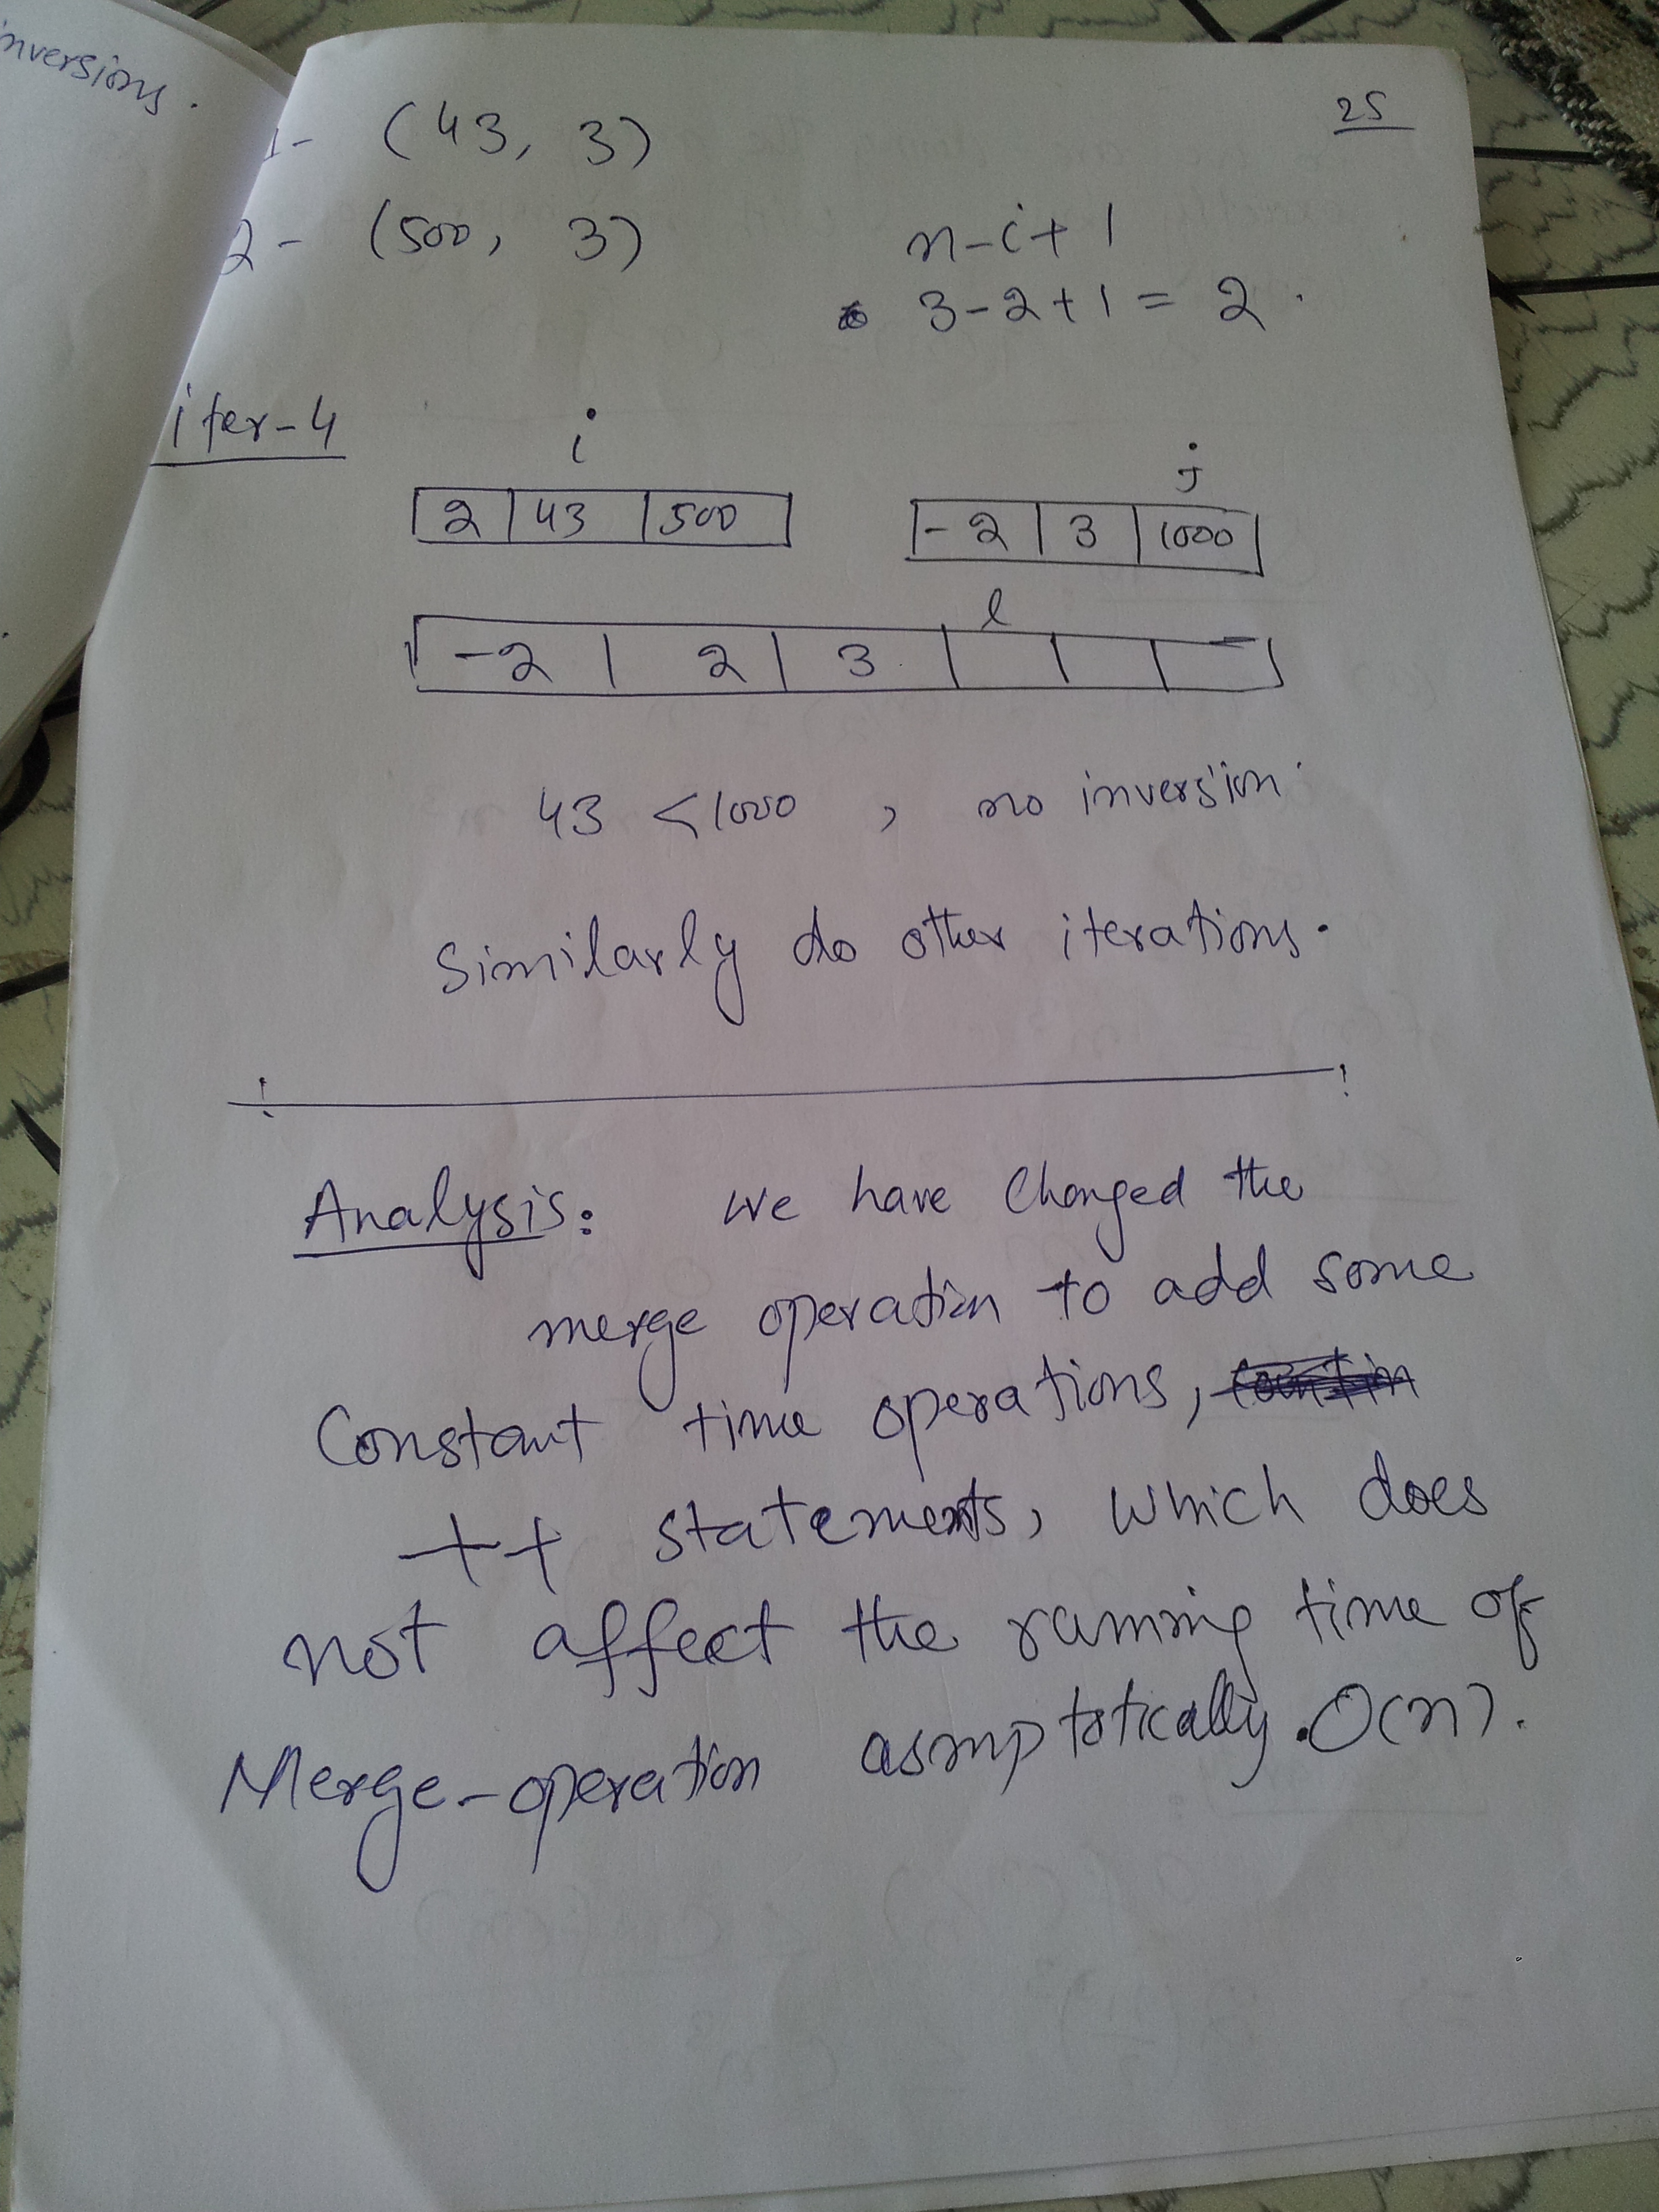 25
1- (43, 3)
2- (500, 3)
n-i+1
3-2+1 = 2.
iter-4
i
j
2 | 43 | 500
-2 | 3 | 1000
l
-2 | 2 | 3
43 < 1000, no inversion.
Similarly do other iterations.
Analysis: we have changed the
merge operation to add some
Constant time operations,
++ statements, which does
not affect the running time of
Merge-operation asomptotically. O(n).
inversions.